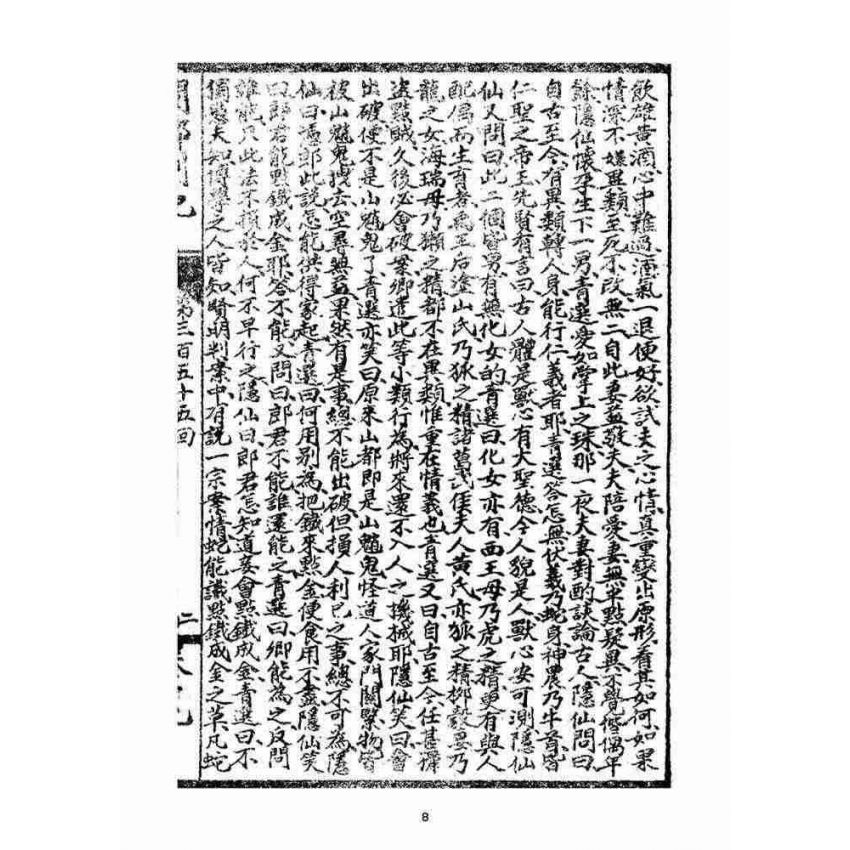 飲雄黃酒心中難過酒氣一退便好欲試夫之心情真重變出原形看其如何如果
情深不嫌異類至死不改無二自此妻益發夫夫陪愛妻無半點疑異不覺偕偶年
餘隱仙懷孕生下一男青選愛如掌上之珠那一夜夫妻對酌談論古人隱仙問曰
自古至今有異類轉人身能行仁義者耶青選答怎無伏羲乃蛇身神農乃牛首皆
仁聖之帝王先賢有言曰古人體是獸心有大聖德今人貌是人獸心安可測隱仙
仙又問曰此二個皆男有無化女的青選曰化女亦有西王母乃虎之精更有與人
配偶而生育者禹王后塗山氏乃狐之精諸葛武侯夫人黃氏亦狐之精柳毅妻乃
龍之女海瑞母乃獺之精都不在異類惟重在情義也青選又曰自古至今任甚
盜點賊久後必會破案鄉遣此等小類行為將來還不入人之機械耶隱仙笑曰會
出破便不是山魈鬼了青選亦笑曰原來山都即是山魈鬼怪道人家門關緊物皆
被山魈鬼搜去空尋無益果然有是事總不能出破但損人利己之事總不可為隱
仙曰憑郎此說怎能供得家起青選曰何用別為把鐵來點金便食用不盡隱仙笑
曰郎君能點鐵成金耶答不能又問曰郎君不能誰還能之青選曰卿能為之反問
誰能只此法不損於人何不早行之隱仙曰郎君怎知道妾會點鐵成金青選曰不
個愚夫知博學之人皆知賢明判案中有說一宗案情蛇能識點鐵成金之草凡蛇
第三百五十五回